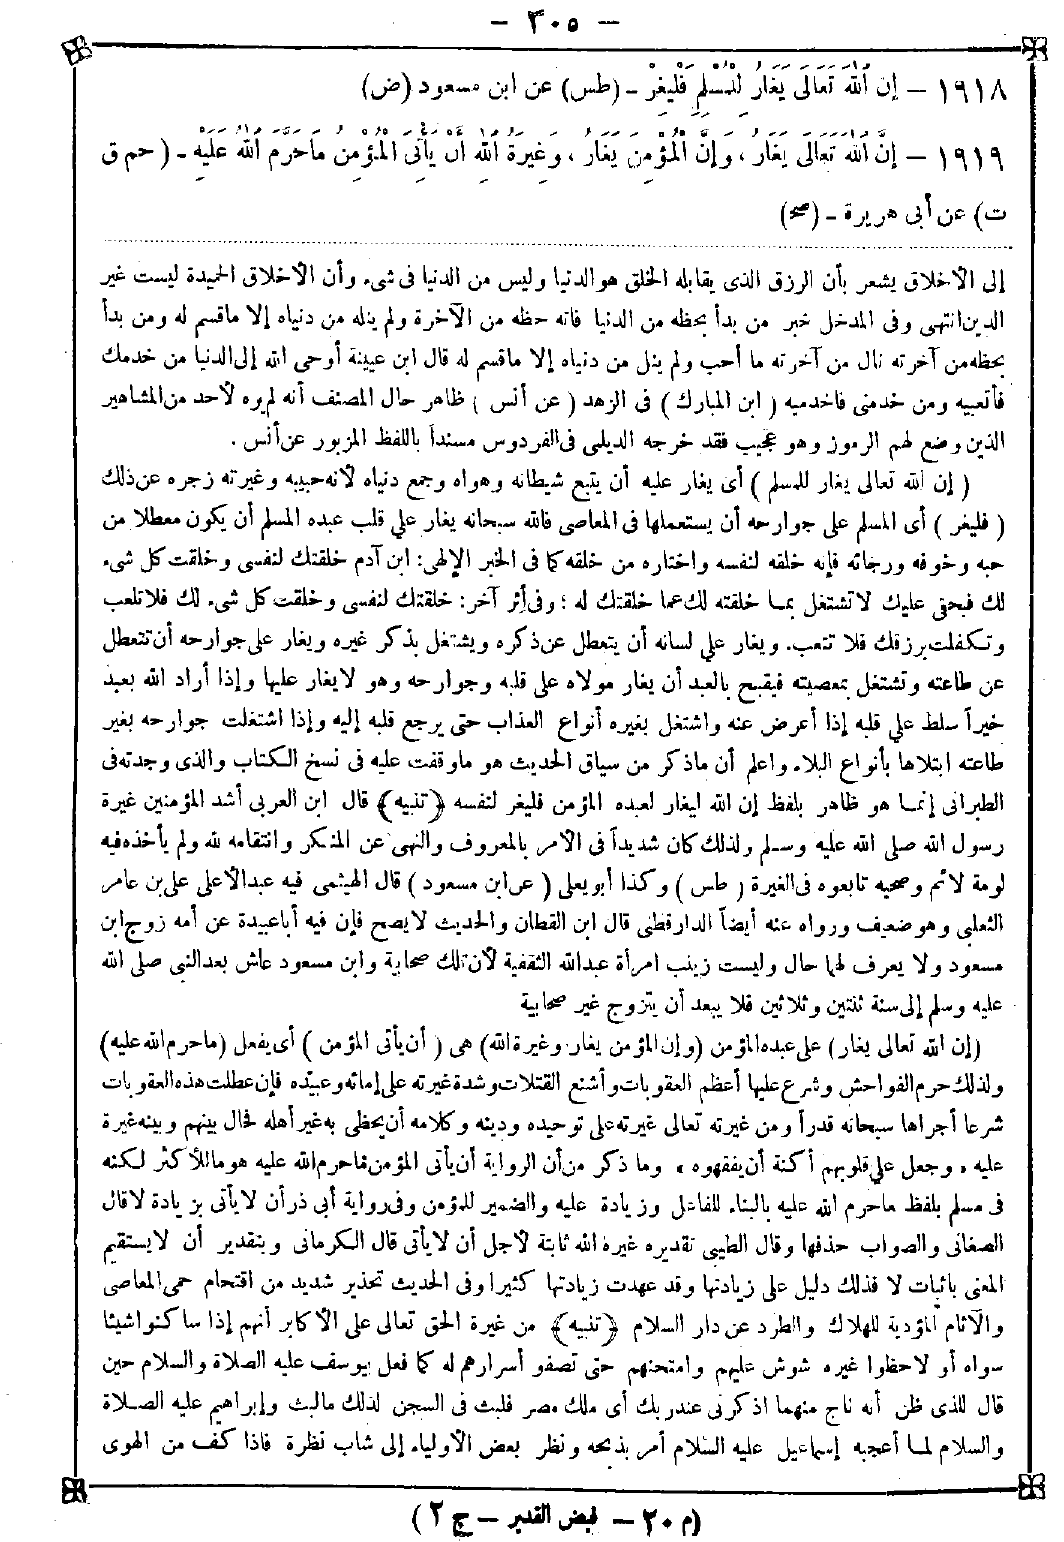 — ٣٠٥ —
١٩١٨ — إِنَّ اللهَ تَعَالَى يَغَارُ لِلْمُسْلِمِ فَلْيَغِرْ - (طس) عن ابن مسعود (ض)
١٩١٩ — إِنَّ اللهَ تَعَالَى يَغَارُ، وَإِنَّ الْمُؤْمِنَ يَغَارُ، وَغِيرَةُ اللهِ أَنْ يَأْتِىَ الْمُؤْمِنُ مَا حَرَّمَ اللهُ عَلَيْهِ - (حم ق
ت) عن أبى هريرة - (صح)
إلى الأخلاق يشعر بأن الرزق الذى يقابله الخلق هو الدنيا وليس من الدنيا فى شىء وأن الأخلاق الحميدة ليست غير
الدين انتهى وفى المدخل خبر من بدأ بحظه من الدنيا فاته حظه من الآخرة ولم ينله من دنياه إلا ماقسم له ومن بدأ
بحظه من آخرته نال من آخرته ما أحب ولم ينل من دنياه إلا ماقسم له قال ابن عيينة أوحى الله إلى الدنيا من خدمك
فأتعبيه ومن خدمنى فاخدميه (ابن المبارك) فى الزهد (عن أنس) ظاهر حال المصنف أنه لم يره لأحد من المشاهير
الذين وضع لهم الرموز وهو عجيب فقد خرجه الديلمى فى الفردوس مسنداً باللفظ المزبور عن أنس .
(إن الله تعالى يغار للمسلم) أى يغار عليه أن يتبع شيطانه وهواه وجمع دنياه لأنه حبيبه وغيرته زجره عن ذلك
(فليغر) أى المسلم على جوارحه أن يستعملها فى المعاصى فالله سبحانه يغار على قلب عبده المسلم أن يكون معطلا من
حبه وخوفه ورجائه فإنه خلقه لنفسه واختاره من خلقه كما فى الخبر الإلهى: ابن آدم خلقتك لنفسى وخلقت كل شىء
لك فبحقى عليك لاتشتغل بما خلقته لك عما خلقتك له ؛ وفى أثر آخر: خلقتك لنفسى وخلقت كل شىء لك فلاتلعب
وتكفلت برزقك فلا تتعب. ويغار على لسانه أن يتعطل عن ذكره ويشتغل بذكر غيره ويغار على جوارحه أن تتعطل
عن طاعته وتشتغل بمعصيته فيقبح بالعبد أن يغار مولاه على قلبه وجوارحه وهو لايغار عليها وإذا أراد الله بعبد
خيراً سلط على قلبه إذا أعرض عنه واشتغل بغيره أنواع العذاب حتى يرجع قلبه إليه وإذا اشتغلت جوارحه بغير
طاعته ابتلاها بأنواع البلاء واعلم أن ماذكر من سياق الحديث هو ماوقفت عليه فى نسخ الكتاب والذى وجدته فى
الطبرانى إنما هو ظاهر بلفظ إن الله ليغار لعبده المؤمن فليغر لنفسه (تنبيه) قال ابن العربى أشد المؤمنين غيرة
رسول الله صلى الله عليه وسلم ولذلك كان شديداً فى الأمر بالمعروف والنهى عن المنكر وانتقامه لله ولم يأخذه فيه
لومة لائم وصحبه تابعوه فى الغيرة (طس) وكذا أبو يعلى (عن ابن مسعود) قال الهيثمى فيه عبد الأعلى على بن عامر
الثعلبى وهو ضعيف ورواه عنه أيضاً الدارقطنى قال ابن القطان والحديث لايصح فإن فيه أبا عبيدة عن أمه زوج ابن
مسعود ولا يعرف لها حال وليست زينب امرأة عبدالله الثقفية لأن تلك صحابية وابن مسعود عاش بعد النبى صلى الله
عليه وسلم إلى سنة ثنتين وثلاثين فلا يبعد أن يتزوج غير صحابية
(إن الله تعالى يغار) على عبده المؤمن (وإن المؤمن يغار وغيرة الله) هى (أن يأتى المؤمن) أى يفعل (ماحرم الله عليه)
ولذلك حرم الفواحش وشرع عليها أعظم العقوبات وأشنع القتلات وشدة غيرته على إمائه وعبيده فإن عطلت هذه العقوبات
شرعا أجراها سبحانه قدراً ومن غيرته تعالى غيرته على توحيده ودينه وكلامه أن يحظى به غير أهله فحال بينهم وبينه غيرة
عليه ، وجعل على قلوبهم أكنة أن يفقهوه ، وما ذكر من أن الرواية أن يأتى المؤمن ماحرم الله عليه هو ماللأكثر لكنه
فى مسلم بلفظ ماحرم الله عليه بالبناء للفاعل وزيادة عليه والضمير للمؤمن وفى رواية أبى ذر أن لا يأتى بزيادة لا قال
الصغانى والصواب حذفها وقال الطيبى تقديره غيرة الله ثابتة لأجل أن لا يأتى قال الكرمانى وبتقدير أن لايستقيم
المعنى باثبات لا فذلك دليل على زيادتها وقد عهدت زيادتها كثيرا وفى الحديث تحذير شديد من اقتحام حمى المعاصى
والآثام المؤدية للهلاك والطرد عن دار السلام (تنبيه) من غيرة الحق تعالى على الأكابر أنهم إذا ساكنوا شيئا
سواه أو لاحظوا غيره شوش عليهم وامتحنهم حتى تصفو أسرارهم له كما فعل بيوسف عليه الصلاة والسلام حين
قال للذى ظن أنه ناج منهما اذكرنى عند ربك أى ملك مصر فلبث فى السجن لذلك مالبث وإبراهيم عليه الصلاة
والسلام لما أعجبه إسماعيل عليه السلام أمر بذبحه ونظر بعض الأولياء إلى شاب نظرة فاذا كف من الهوى
(م ٢٠ — فيض القدير — ج ٢)